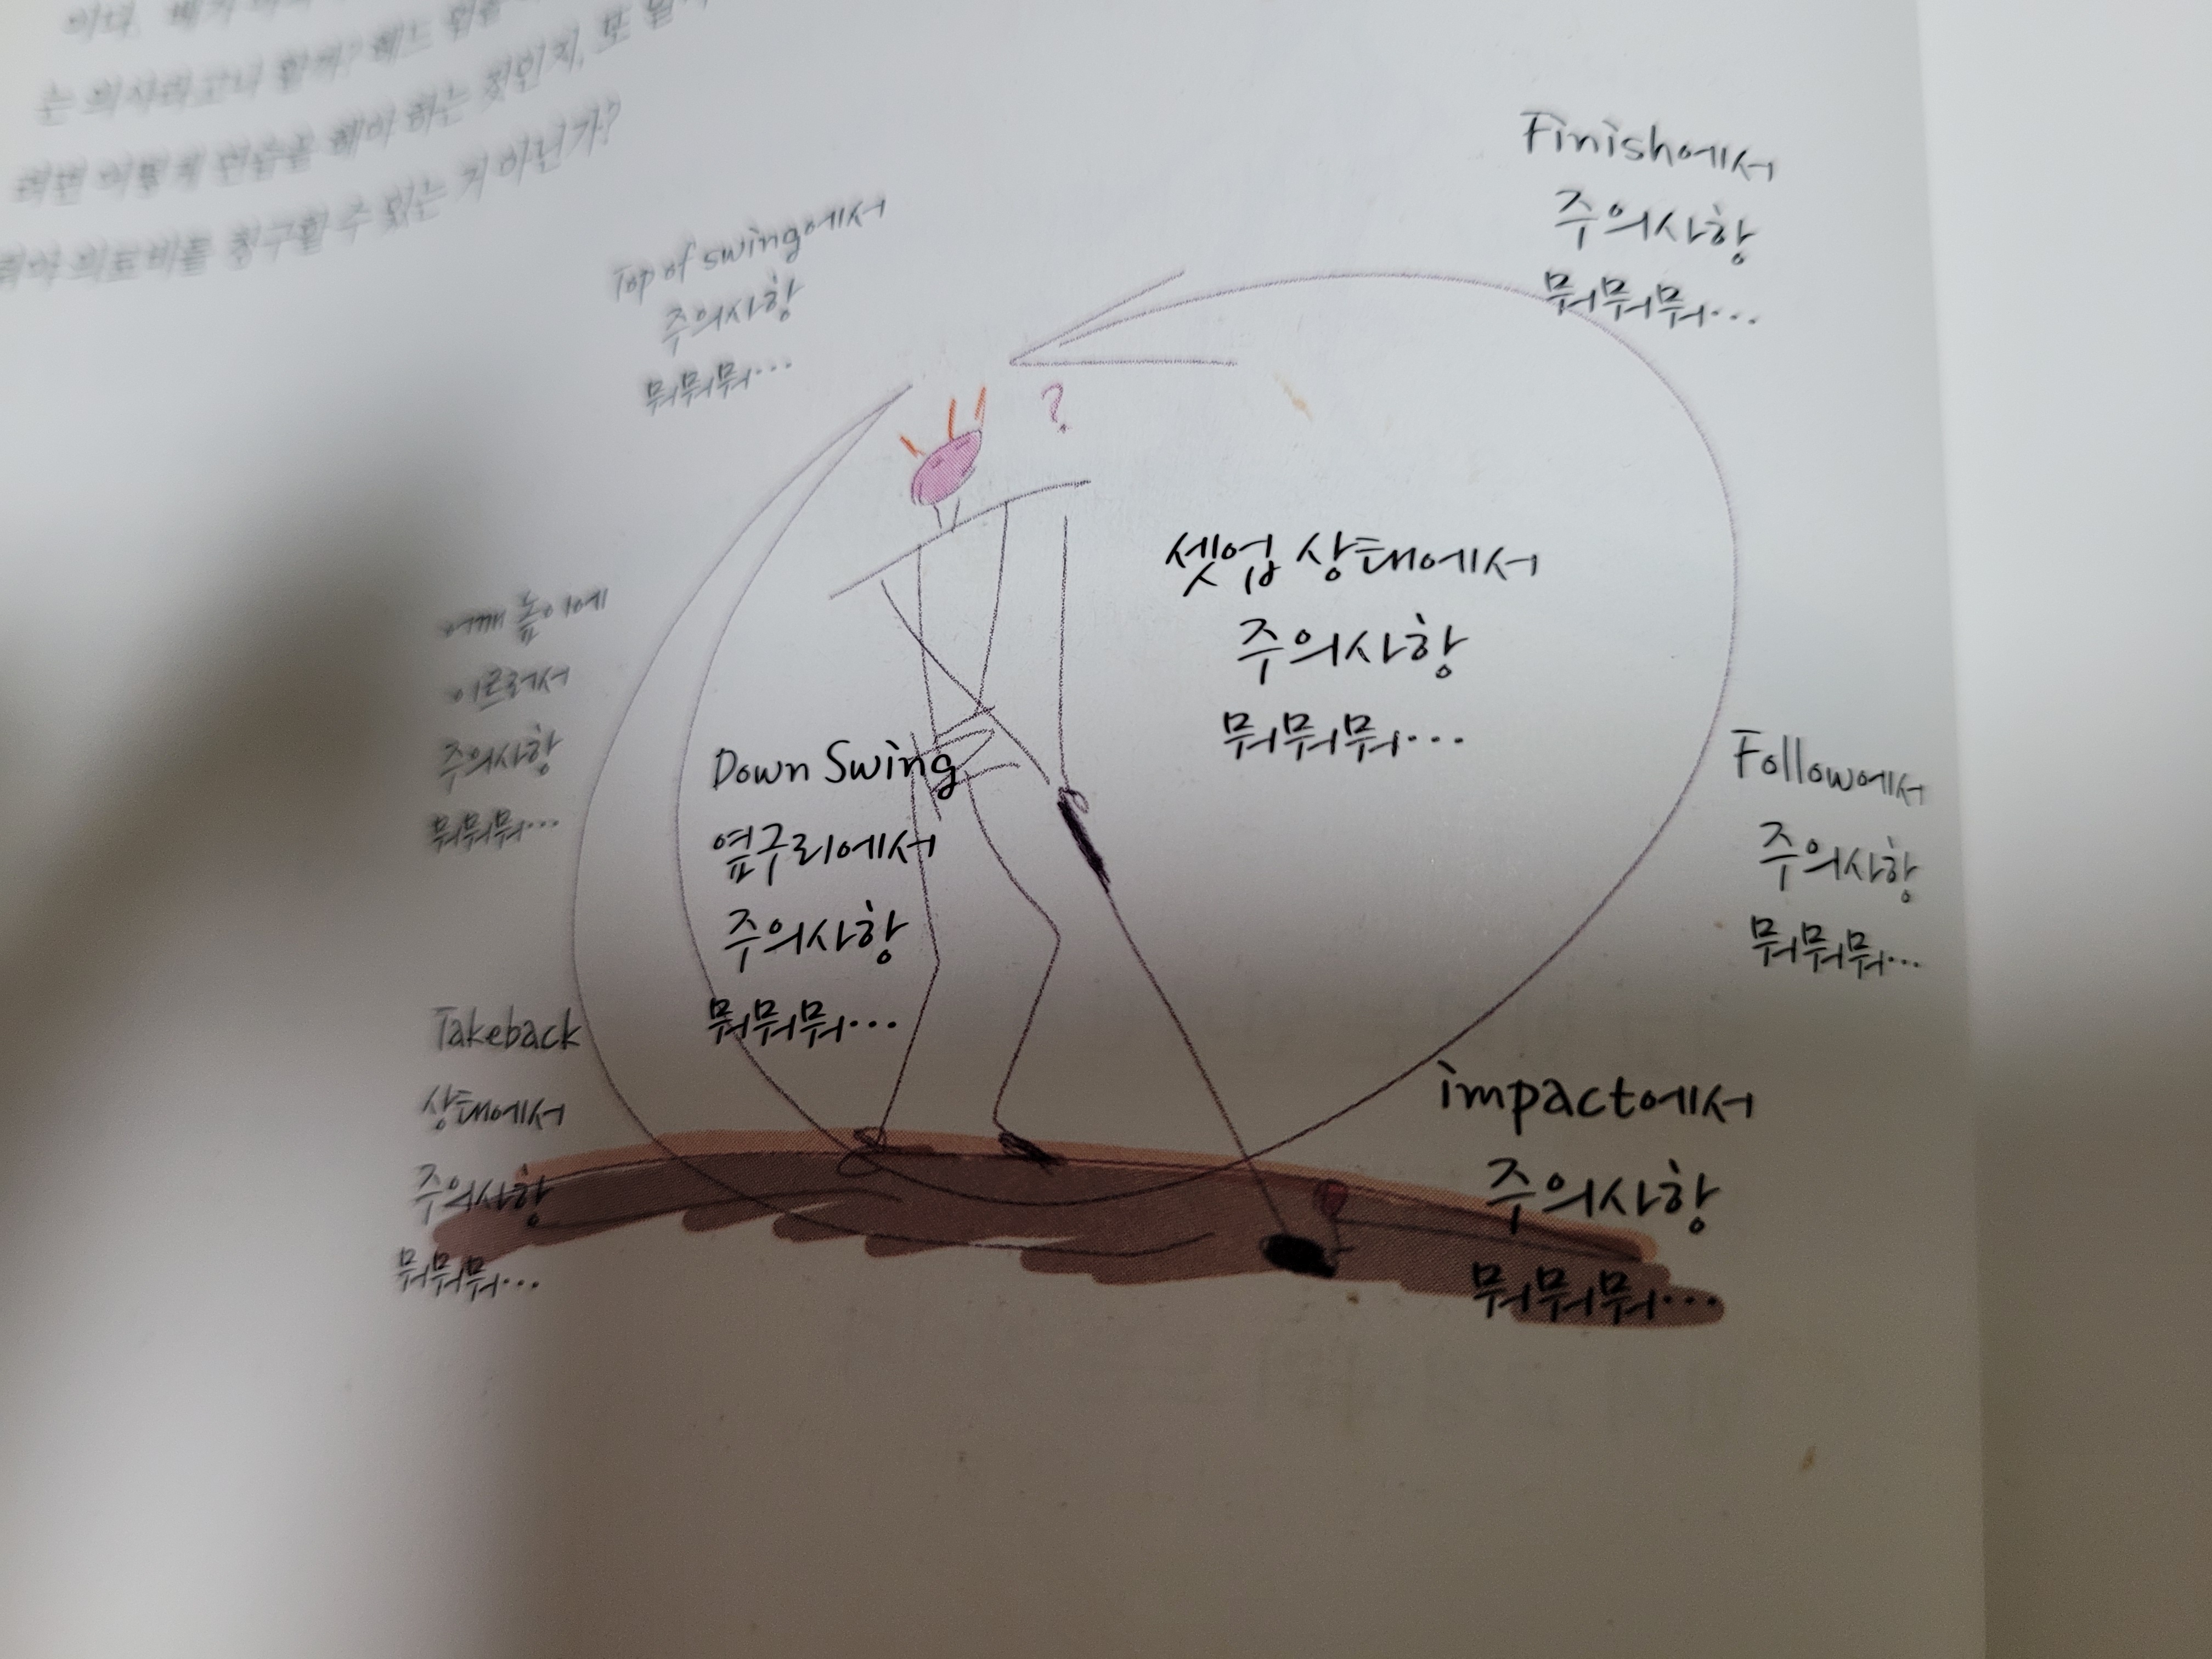 는 의사라고나 할까?
려면 어떻게 연습을 해야 하는 것인지, 또
의료비를 청구할 수 있는 거 아닌가?
Top of swing에서
주의사항
뭐뭐뭐...
Finish에서
주의사항
뭐뭐뭐...
?
어깨 높이에
이르러서
주의사항
뭐뭐뭐...
셋업 상태에서
주의사항
뭐뭐뭐...
Down Swing
옆구리에서
주의사항
뭐뭐뭐...
Follow에서
주의사항
뭐뭐뭐...
Takeback
상태에서
주의사항
뭐뭐뭐...
impact에서
주의사항
뭐뭐뭐...